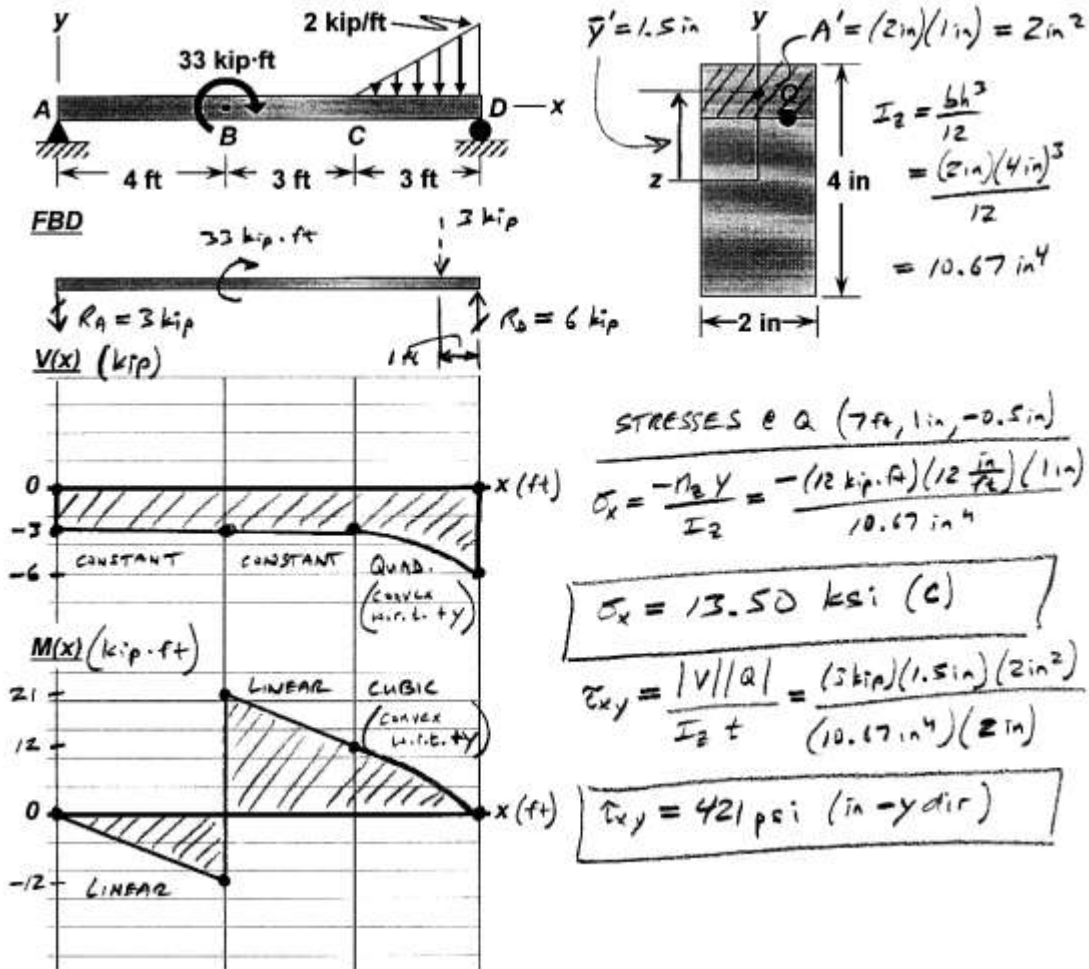 y
2 kip/ft
33 kip·ft
A
B
C
D
x
4 ft
3 ft
3 ft
FBD
33 kip·ft
3 kip
R_A = 3 kip
R_D = 6 kip
1 ft
V(x) (kip)
0
x (ft)
-3
-6
CONSTANT
CONSTANT
QUAD.
(CONVEX
w.r.t. +y)
M(x) (kip·ft)
21
12
0
-12
LINEAR
LINEAR
CUBIC
(CONVEX
w.r.t. +y)
x (ft)
ȳ' = 1.5 in
y
A' = (2in)(1in) = 2in²
Q
z
4 in
2 in
I_z = bh³/12
= (2in)(4in)³/12
= 10.67 in⁴
STRESSES @ Q (7ft, 1in, -0.5in)
σ_x = -M_z y / I_z = -(12 kip·ft)(12 in/ft)(1in) / 10.67 in⁴
σ_x = 13.50 ksi (C)
τ_xy = |V||Q| / I_z t = (3kip)(1.5in)(2in²) / (10.67 in⁴)(2 in)
τ_xy = 421 psi (in -y dir)